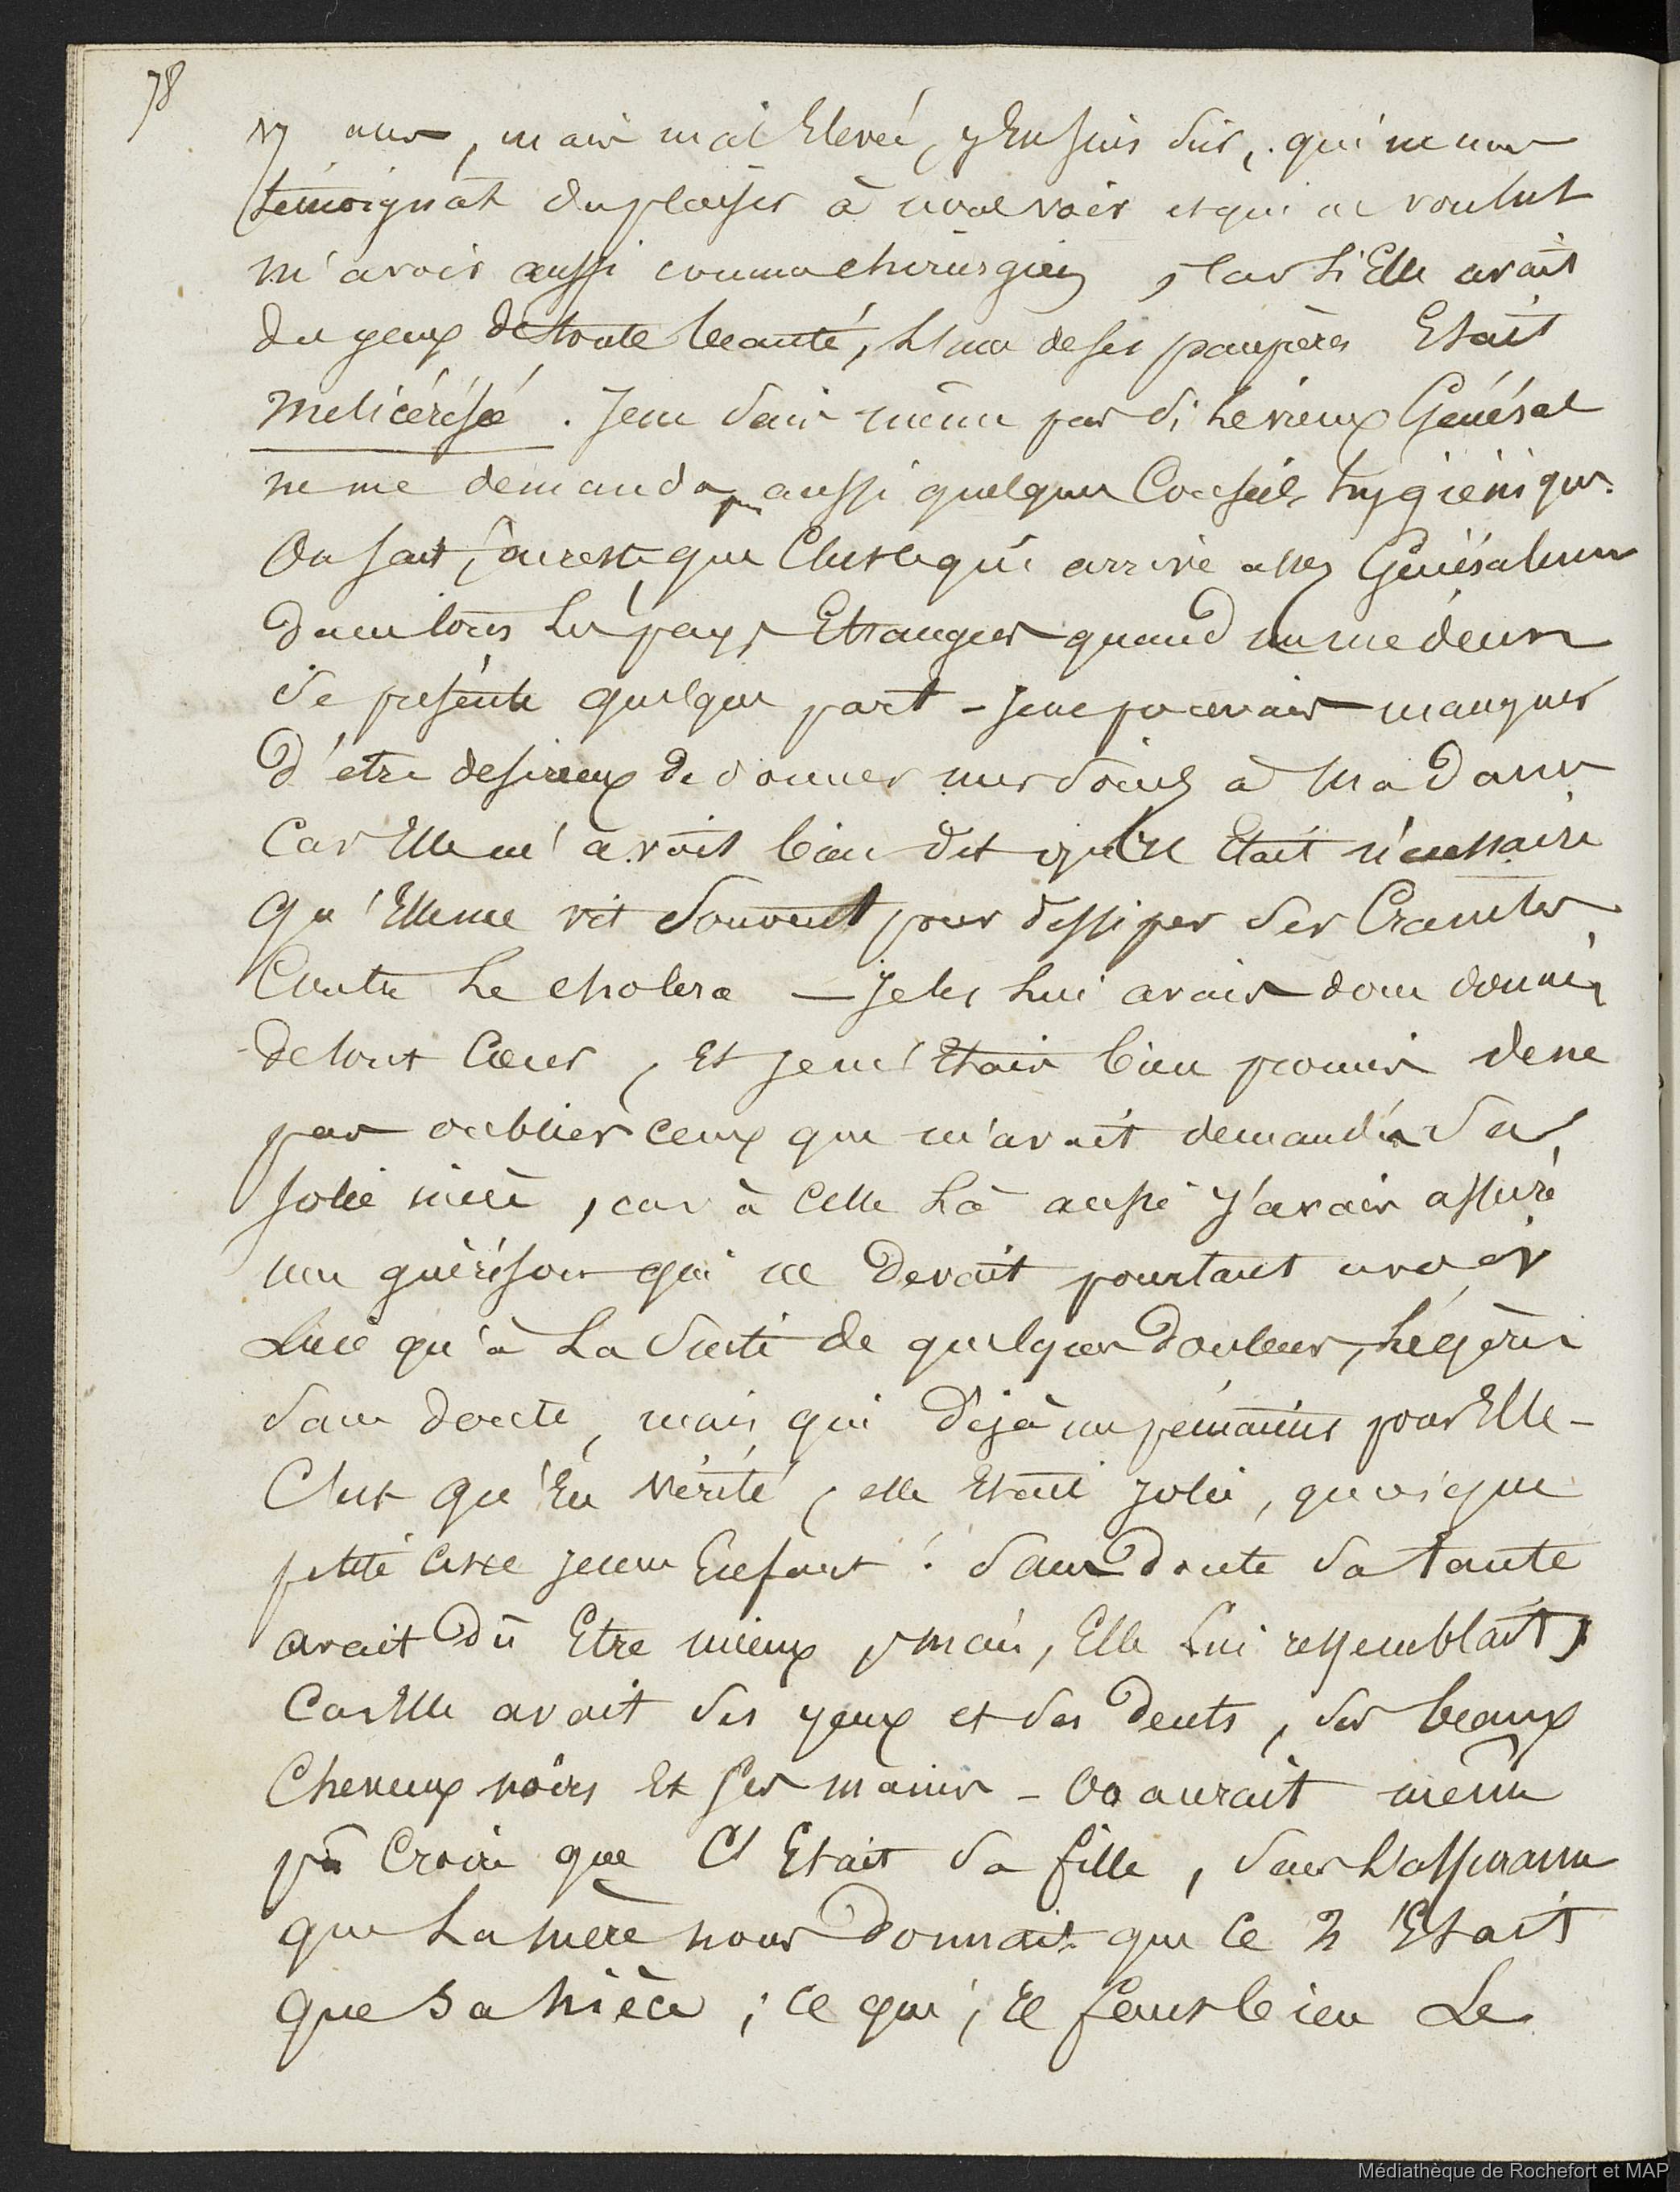 78
17 ans, mais mal Elevée, j'En suis sûr, qui ne nous
témoignât du plaisir à nous voir et qui ne voulut
m'avoir aussi comme chirurgien, car si Elle avait
des yeux de toute beauté, l'une de ses paupières Etait
melicérisée. Je ne sais même pas si le vieux Général
ne me demanda pas aussi quelques Conseils hygièniques.
On sait, au reste que C'est ce qui arrive assez Généralement
dans tous les pays Etrangers quand un médecin
se présente quelque part - je ne pouvais manquer
d'etre desireux de donner mes soins à Madame
Car Elle m'avait bien dit qu'il Etait nécessaire
qu'Elle me vit souvent pour dissiper ses Craintes
Contre le cholera — je les lui avais donc donnés
de tout Coeur, Et je m'Etais bien promis de ne
pas oublier ceux que m'avait demandés sa
jolie nièce, car à Celle là aussi j'avais assuré
une guérison qui ne devait pourtant avoir
lieu qu'à la suite de quelques douleurs, légères
sans doute, mais qui déjà pour Elle -
C'est qu'En vérité, elle Etait jolie, quoique
petite Et jeune Enfant! sans doute sa tante
avait dû Etre mieux, mais, Elle lui ressemblait,
Car Elle avait ses yeux et ses dents, ses beaux
Cheveux noirs Et ses mains - On aurait même
pû Croire que C'Etait sa fille, sans l'assurance
que la mère nous donnait que Ce n'Etait
que sa nièce; ce qui, il faut bien le
Médiathèque de Rochefort et MAP